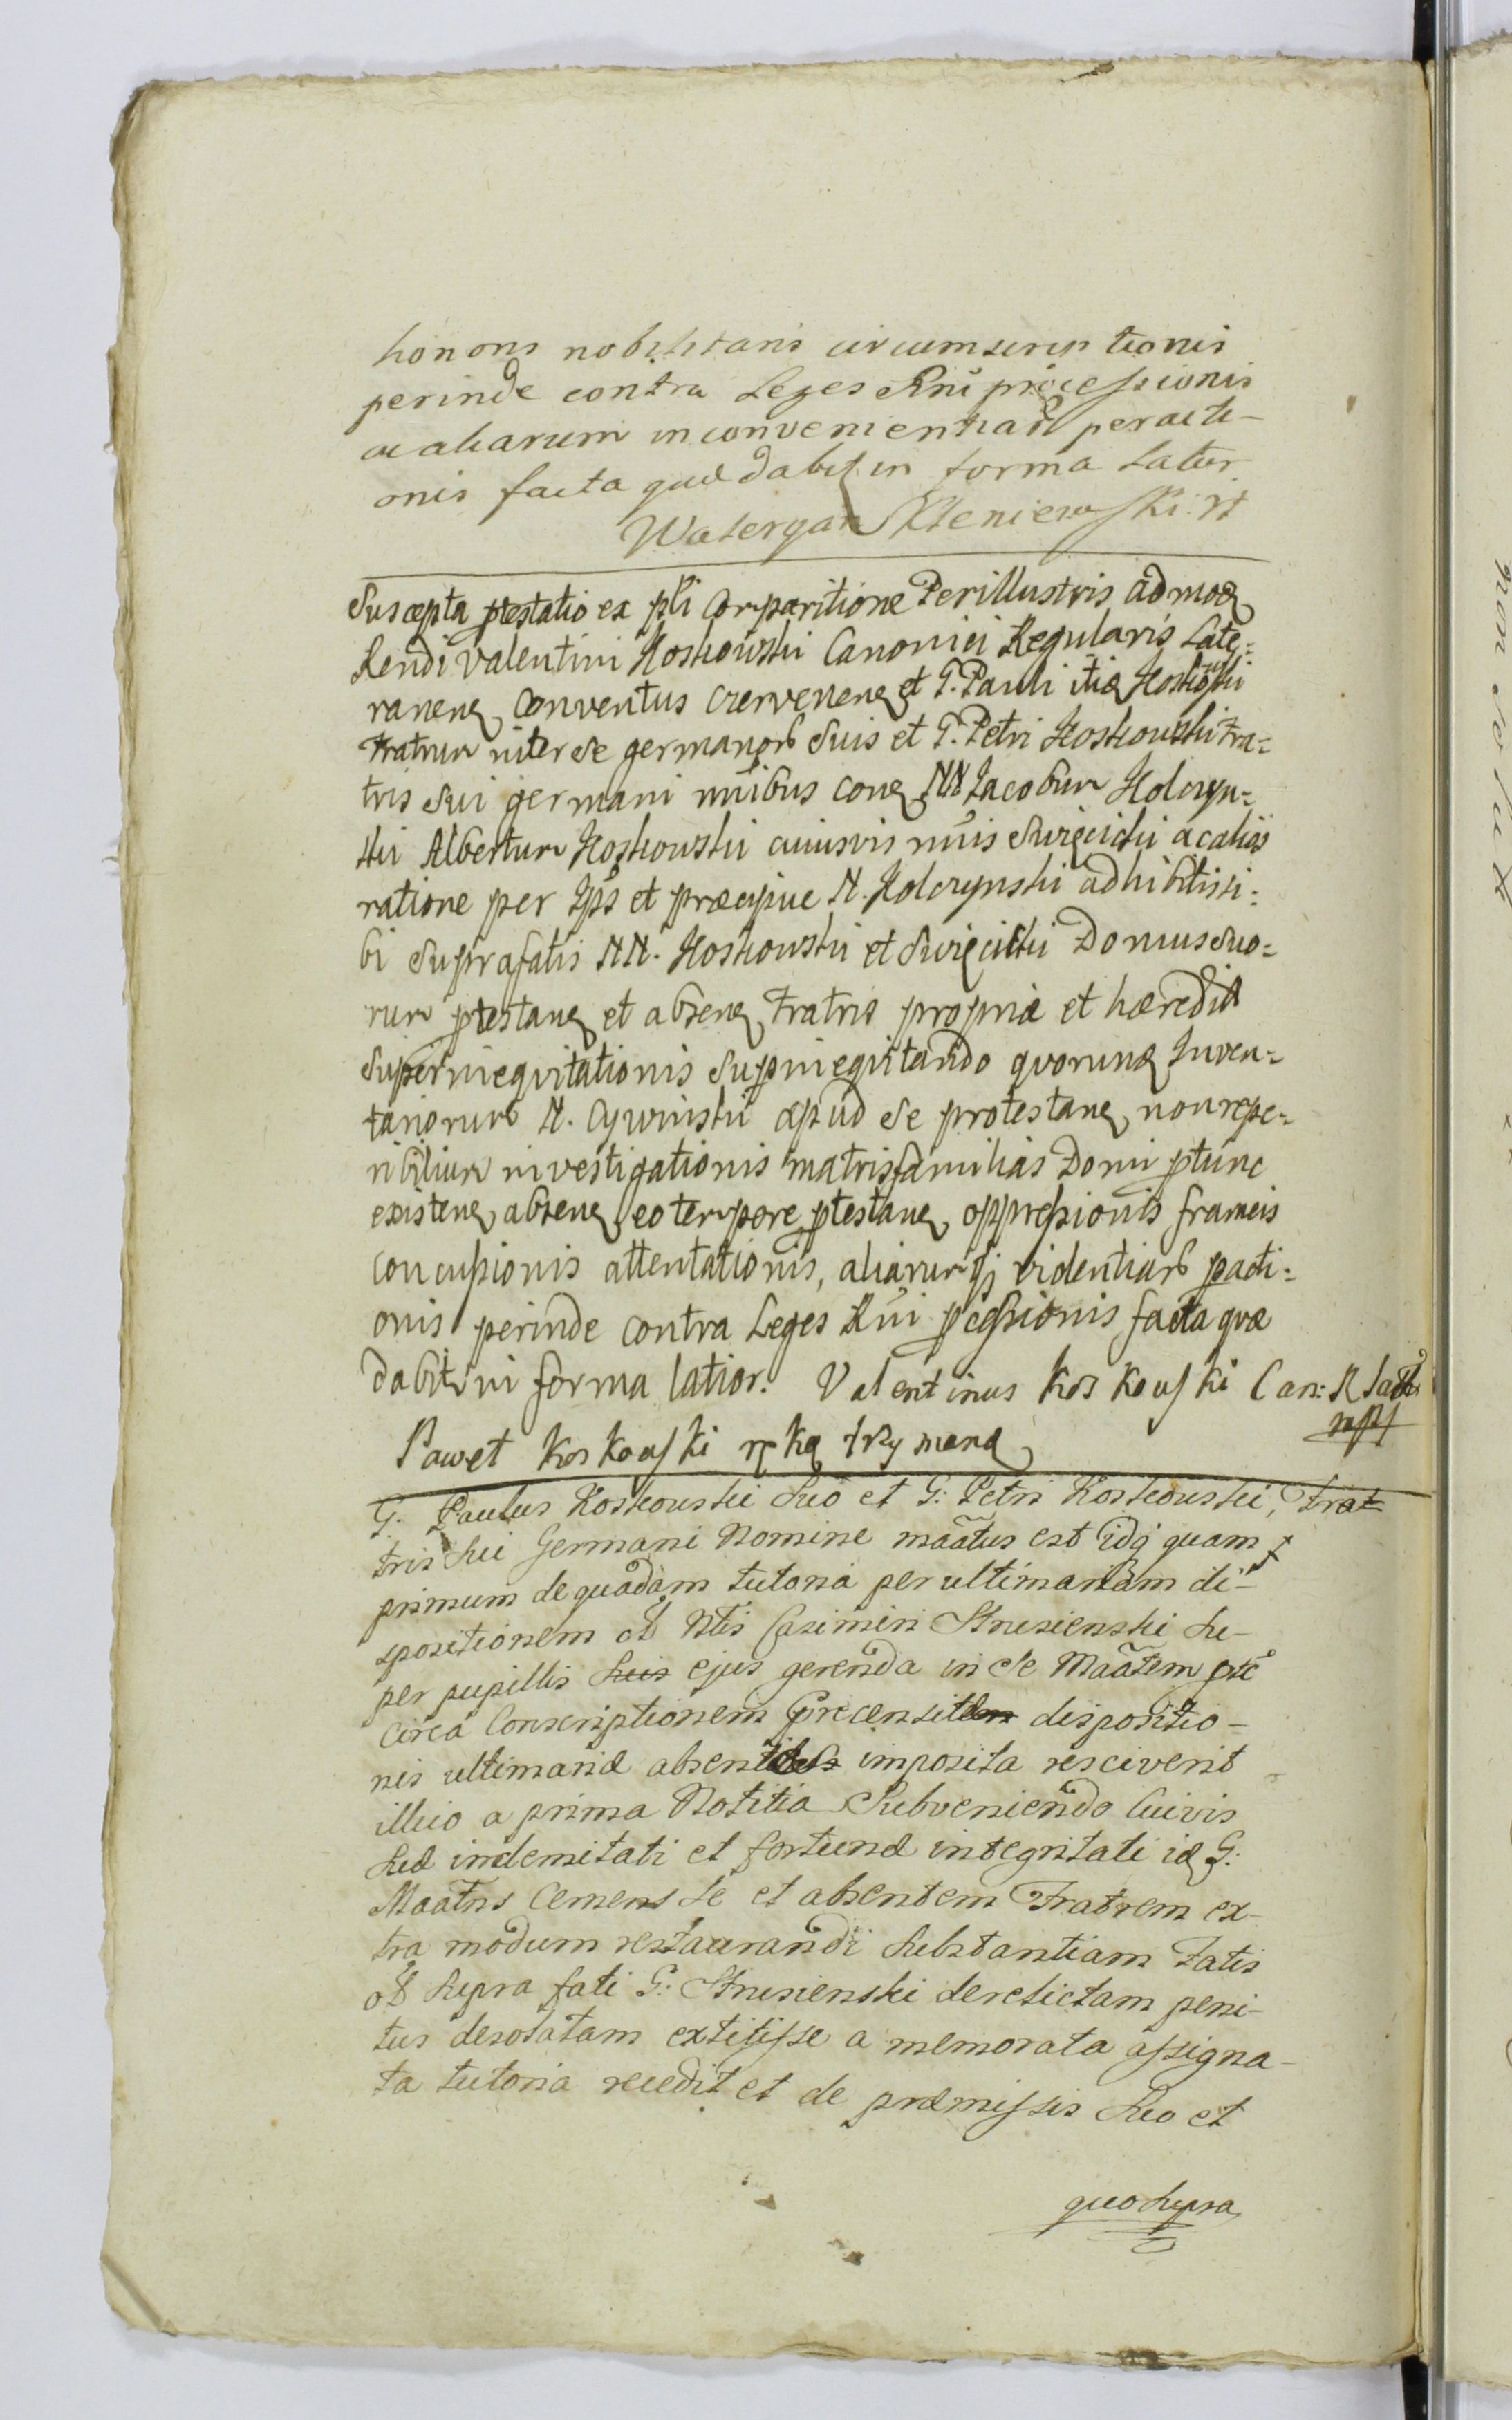 honoris nobilitaris circumscriptionis
perinde contra Leges Rni processionis
ac aliarum inconvenientiarũ peracti-
onis facta quæ dabit in forma latior
Waleryan Kleniewski
Suscepta ptestatio ex pli Comparitione Perillustris admoɖ
Rendi Valentini Koskowski Canonici Regularis Late=
raneneȝ Conventus Czerveneneȝ et G. Pauli itiɖ Koskowski
Fratrum inter se germanorũ suis et G. Petri Koskowski Fra=
tris sui germani nnibus coneȝ NN Jacobum Kolczyn=
ski Albertum Koskowski cuiusvis nnis Swięcicki ac alios
ratione per Ips et præcipue N. Kolczynski adhibitis si=
bi suprafatis NN. Koskowski et Swięcicki Domus suo=
rum ptestaneȝ et abseneȝ Fratris propriæ et hæredit
Superinequitationis Supinequitando quorunɖ Inven=
tariorum N. Cywinski apud se protestaneȝ non repe=
ribilium investigationis matrisfamilias Domi ptunc
existeneȝ abseneȝ eo tempore ptestaneȝ oppressionis frameis
concussionis attentationis, aliarumqj videntiarũ pacti=
onis perinde contra Leges Rni pcessionis facta quæ
dabit in forma latior. Valentinus Koskowski Can: R Late
mp
Paweł Koskowski ręką trzymaną
G. Paulus Koskowski suo et G: Petri Koskowski, Frat
tris sui Germani Nomine maãtus est idq quam
primum de quadam tutoria per ultimariam di-
spositionem ol Ntis Casimiri Strusienski su-
per pupillis suis ejus gerenda in se Maãtem ptc
circa Conscriptionem præcensiten dispositio-
nis ultimariæ absen imposita resciverit
illico a prima Notitia Subveniendo Cuivis
suæ indemnitati et fortunæ integritati iɖ G:
Maãtns Cernens se et absentem Fratrem ex-
tra modum restaurandi substantiam Fatis
ol supra fati G: Strusienski derelictam peni-
tus desolatam extitisse a memorata assigna-
ta tutoria recedit et de præmissis suo et
quo supra